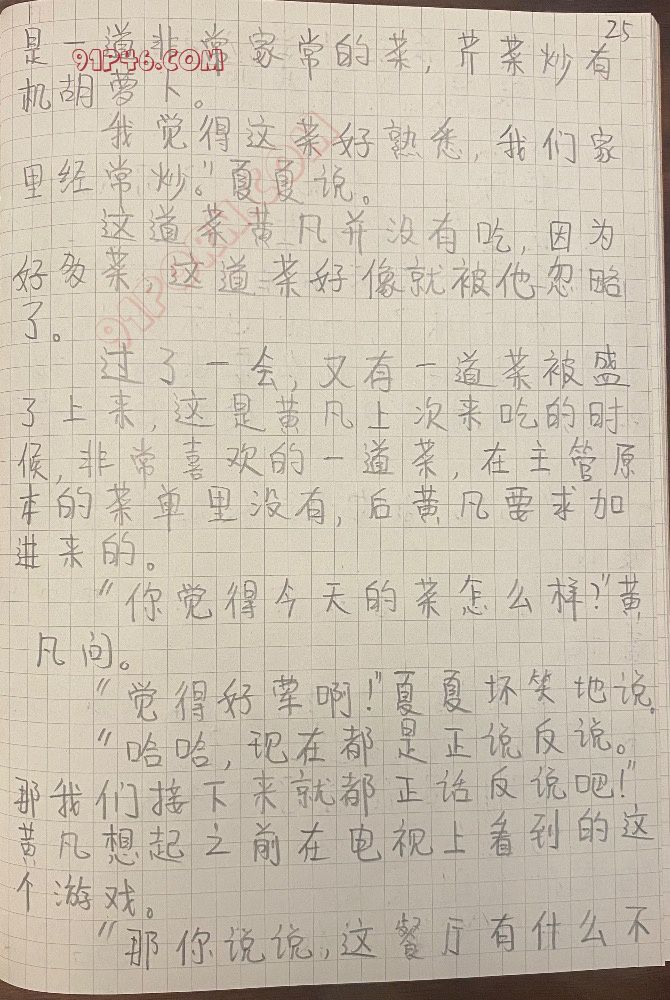 25
是一道非常家常的菜，芹菜炒有
91P46.COM
机胡萝卜。
我觉得这菜好熟悉，我们家
里经常炒。”夏夏说。
这道菜黄凡并没有吃，因为
好多菜，这道菜好像就被他忽略
了。
过了一会，又有一道菜被盛
了上来，这是黄凡上次来吃的时
候，非常喜欢的一道菜，在主管原
本的菜单里没有，后黄凡要求加
进来的。
“你觉得今天的菜怎么样？”黄
凡问。
“觉得好荤啊！”夏夏坏笑地说。
“哈哈，现在都是正说反说。
那我们接下来就都正话反说吧！”
黄凡想起之前在电视上看到的这
个游戏。
“那你说说，这餐厅有什么不